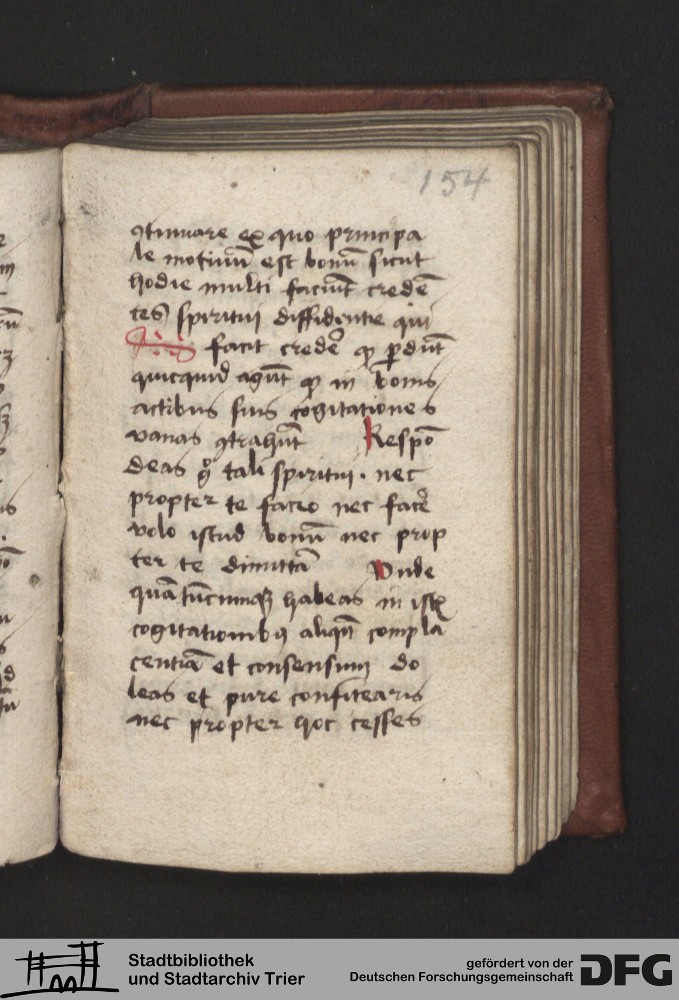 154
ꝯtinuare ex quo principa
le motiuū est bonū sicut
hodie multi faciūt credē
tes spiritui diffidentie qui
facit credeꝰ qꝫ ꝑdūt
quicquid agūt qꝫ in bonis
actibus suis cogitationes
vanas ꝯtrahūt Respō
deas gͦ tali spiritui. nec
propter te facio nec facē
volo istud bonū nec prop
ter te dimittā Vnde
quātūcumqꝫ habeas in istꝭ
cogitationibꝫ aliqn̄ complā
centiā et consensum do
leas et pure confitearis
nec propter hoc cesses
Stadtbibliothek
und Stadtarchiv Trier
gefördert von der
Deutschen Forschungsgemeinschaft
DFG